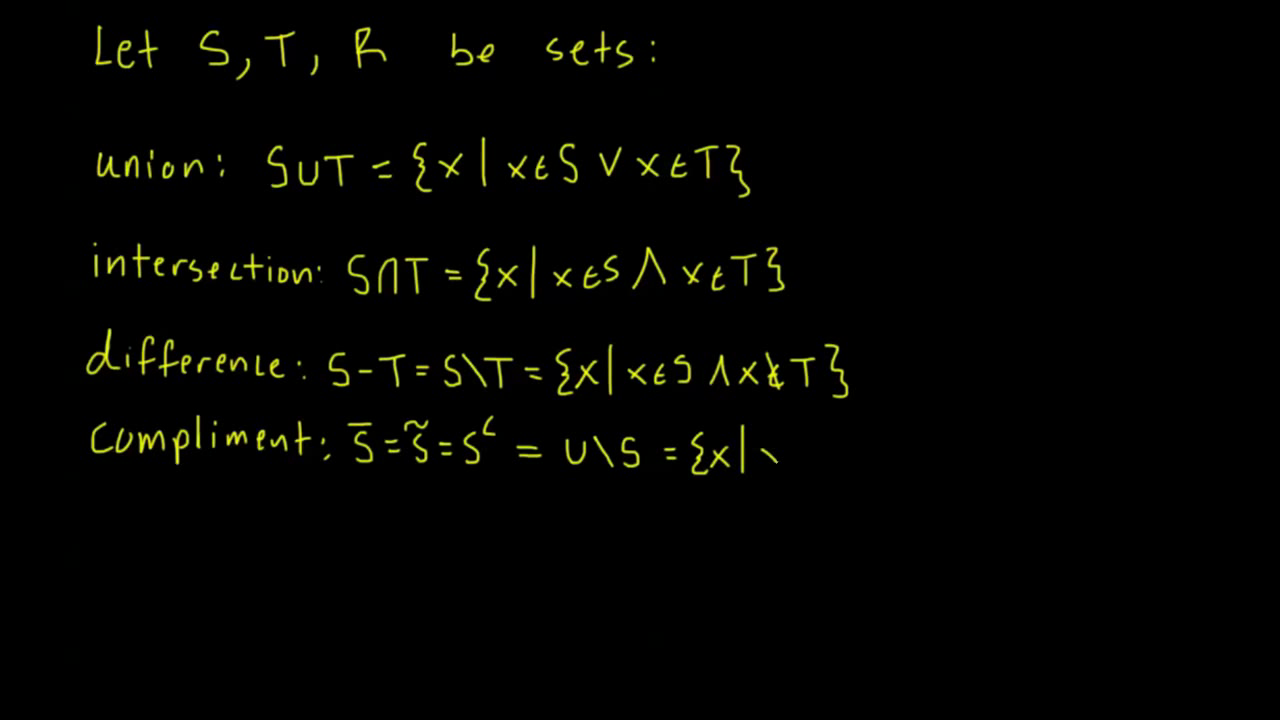 Let S, T, R be sets:
union: S∪T = {x | x∈S ∨ x∈T}
intersection: S∩T = {x | x∈S ∧ x∈T}
difference: S-T = S\T = {x | x∈S ∧ x∉T}
Compliment: S̅ = S̃ = Sᶜ = U\S = {x |